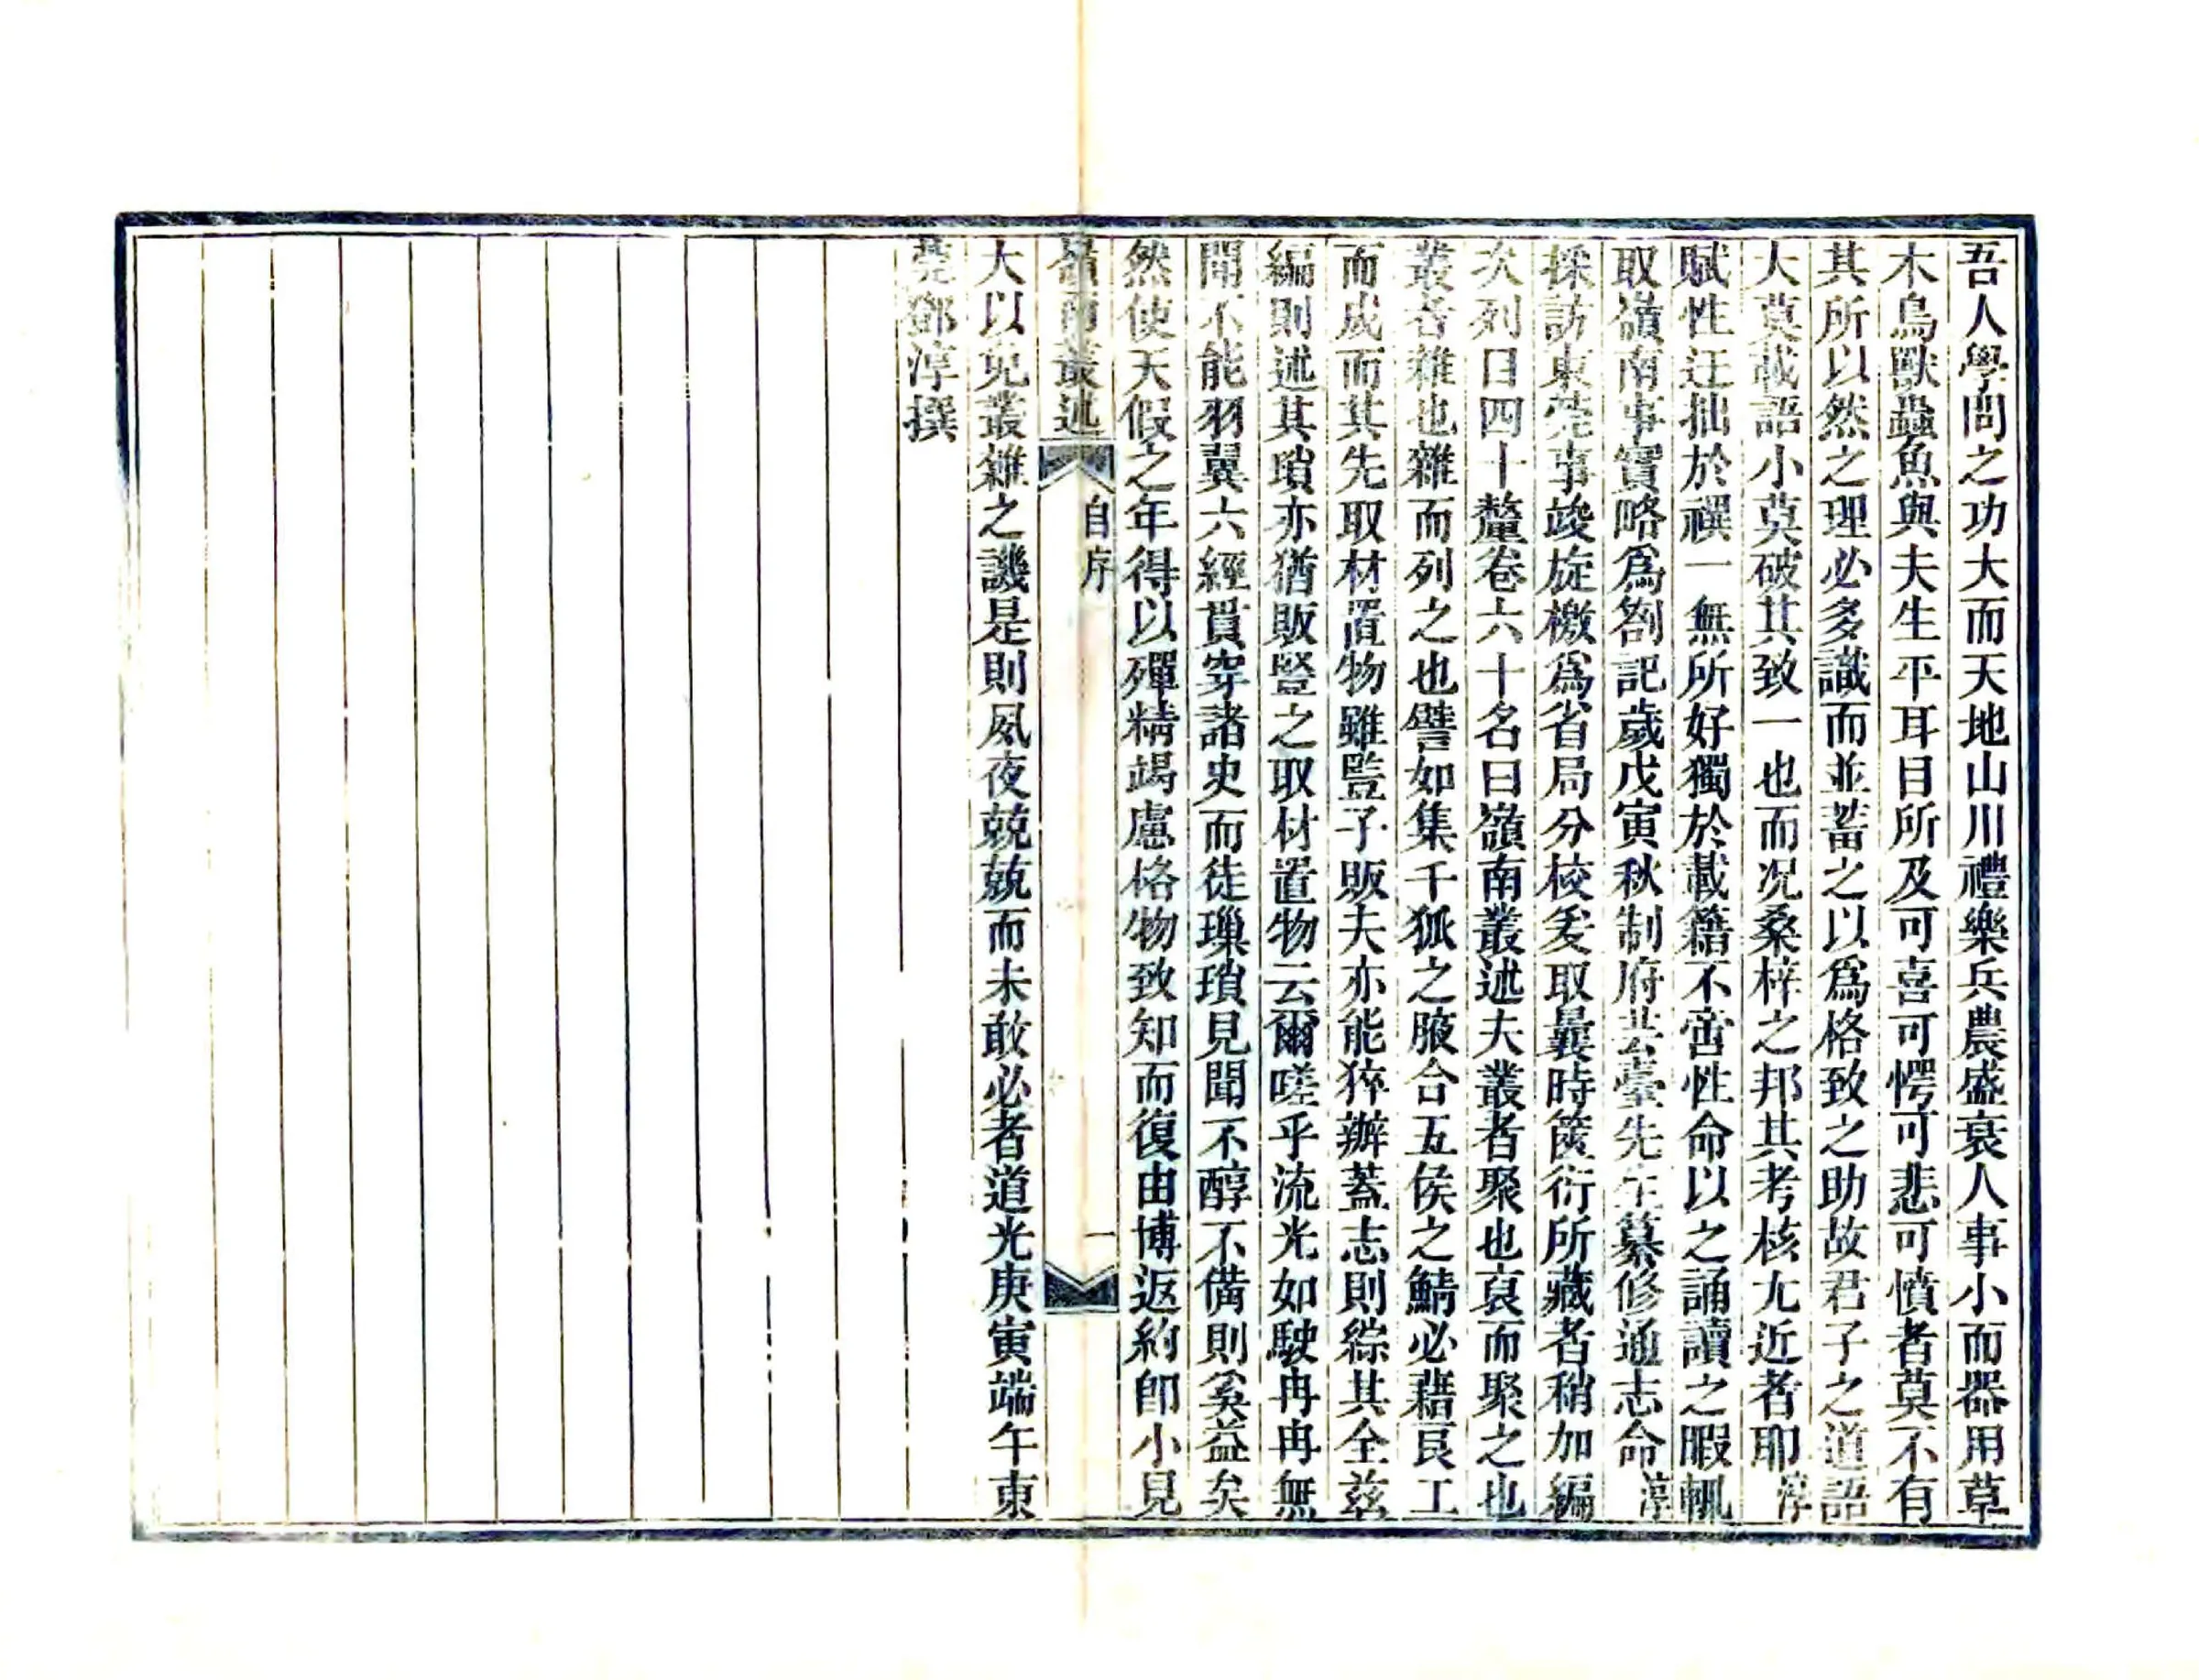 吾人學問之功大而天地山川禮樂兵農盛衰人事小而器用草
木鳥獸蟲魚與夫生平耳目所及可喜可愕可悲可憤者莫不有
其所以然之理必多識而並蓄之以爲格致之助故君子之道語
大莫載語小莫破其致一也而况桑梓之邦其考核尤近者耶淳
賦性迂拙於禩一無所好獨於載籍不啻性命以之誦讀之暇輒
取嶺南事實略爲劄記歲戊寅秋制府芸臺先生纂修通志命淳
採訪東莞事竣旋檄爲省局分校爰取曩時篋衍所藏者稍加編
次列目四十釐卷六十名曰嶺南叢述夫叢者聚也裒而聚之也
叢者雜也雜而列之也譬如集千狐之腋合五侯之鯖必藉良工
而成而其先取材置物雖豎子販夫亦能猝辦蓋志則綜其全茲
編則述其瑣亦猶販豎之取材置物云爾嗟乎流光如駛冉冉無
聞不能羽翼六經貫穿諸史而徒璅瑣見聞不醇不備則奚益矣
然使天假之年得以殫精竭慮格物致知而復由博返約卽小見
嶺南叢述
自序
一
大以免叢雜之譏是則夙夜兢兢而未敢必者道光庚寅端午東
莞鄧淳撰